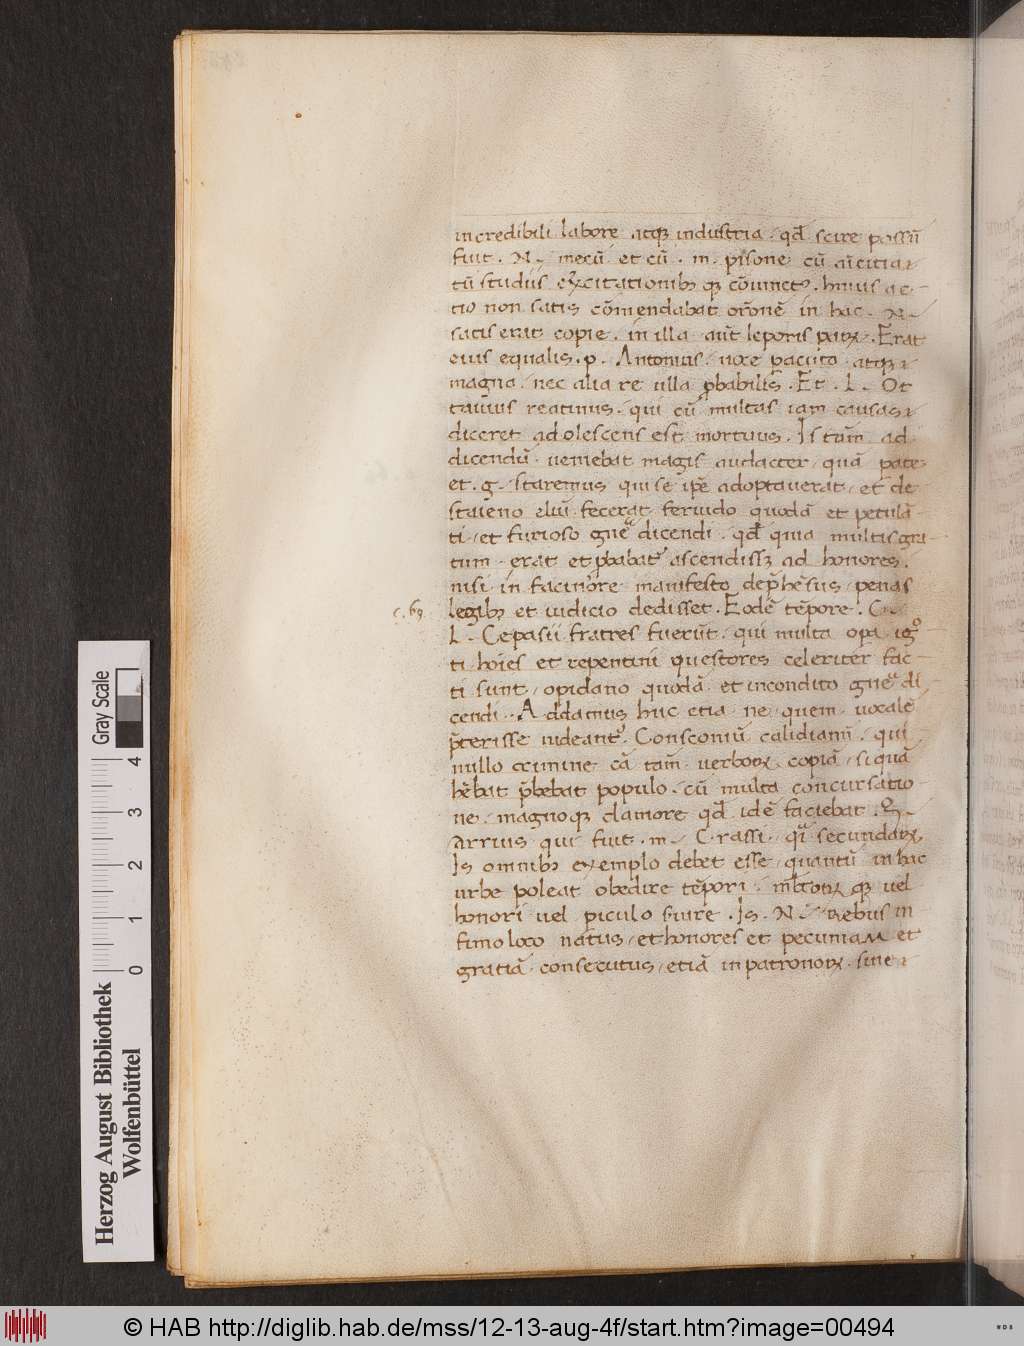 incredibili labore atqꝫ industria · qđ scire possū
fuit · N · mecū et cū · m · pisone cū aīcitia
tū studiis exercitationibꝫ qꝫ cōiunctꝰ · huius ac-
tio non satis cōmendabat orōnē in hac · N
satis erat copie · in illa aūt leporis parꝝ · Erat
eius equalis · p · Antonius · uoce pacuto atqꝫ
magna · nec alia re ulla ꝓbabilis · Et · L · Oc
tauius reatinus · qui cū multas iam causas
diceret adolescens est mortuus · Is tam̄ ad
dicendū ueniebat magis audacter quā pate
et · g · staremus qui se ip̄e adoptauerat et de
staieno eliū fecerat feruido quodā et petulā
ti et furioso gn̄e dicendi · qđ quia multis gra
tum erat et ꝓbabatꝰ ascendissꝫ ad honores ·
nisi in facinore manifesto dep̄hēsus penas
c. 69
legibꝫ et iudicio dedisset · Eodē tēpore · C
L · Cepasii fratres fuerūt · qui multa op̄a ig
ti hoīes et repentini questores celeriter fac
ti sunt opidano quodā et incondito gn̄e di
cendi · Addamus huc etiā ne quem uocalē
p̄terisse uideant᷑ · Consconiū calidianū · qui
nullo acumine eā tam̄ uerborꝝ copiā siquā
hēbat p̄bebat populo · cū multa concursatio
ne magnoqꝫ clamore qđ idē faciebat · Q
Arrius qui fuit · m · Crassi · qͣ secundarꝝ
Is omnibꝫ exemplo debet esse quantū in hac
urbe poleat obedire tēpori · m̄torꝝ qꝫ uel
honori uel piculo suire · Is · N · Rebus in
fimo loco natus et honores et pecuniam et
gratiā consecutus etiā in patronorꝝ sine
Herzog August Bibliothek
Wolfenbüttel
Gray Scale
0 1 2 3 4
© HAB http://diglib.hab.de/mss/12-13-aug-4f/start.htm?image=00494